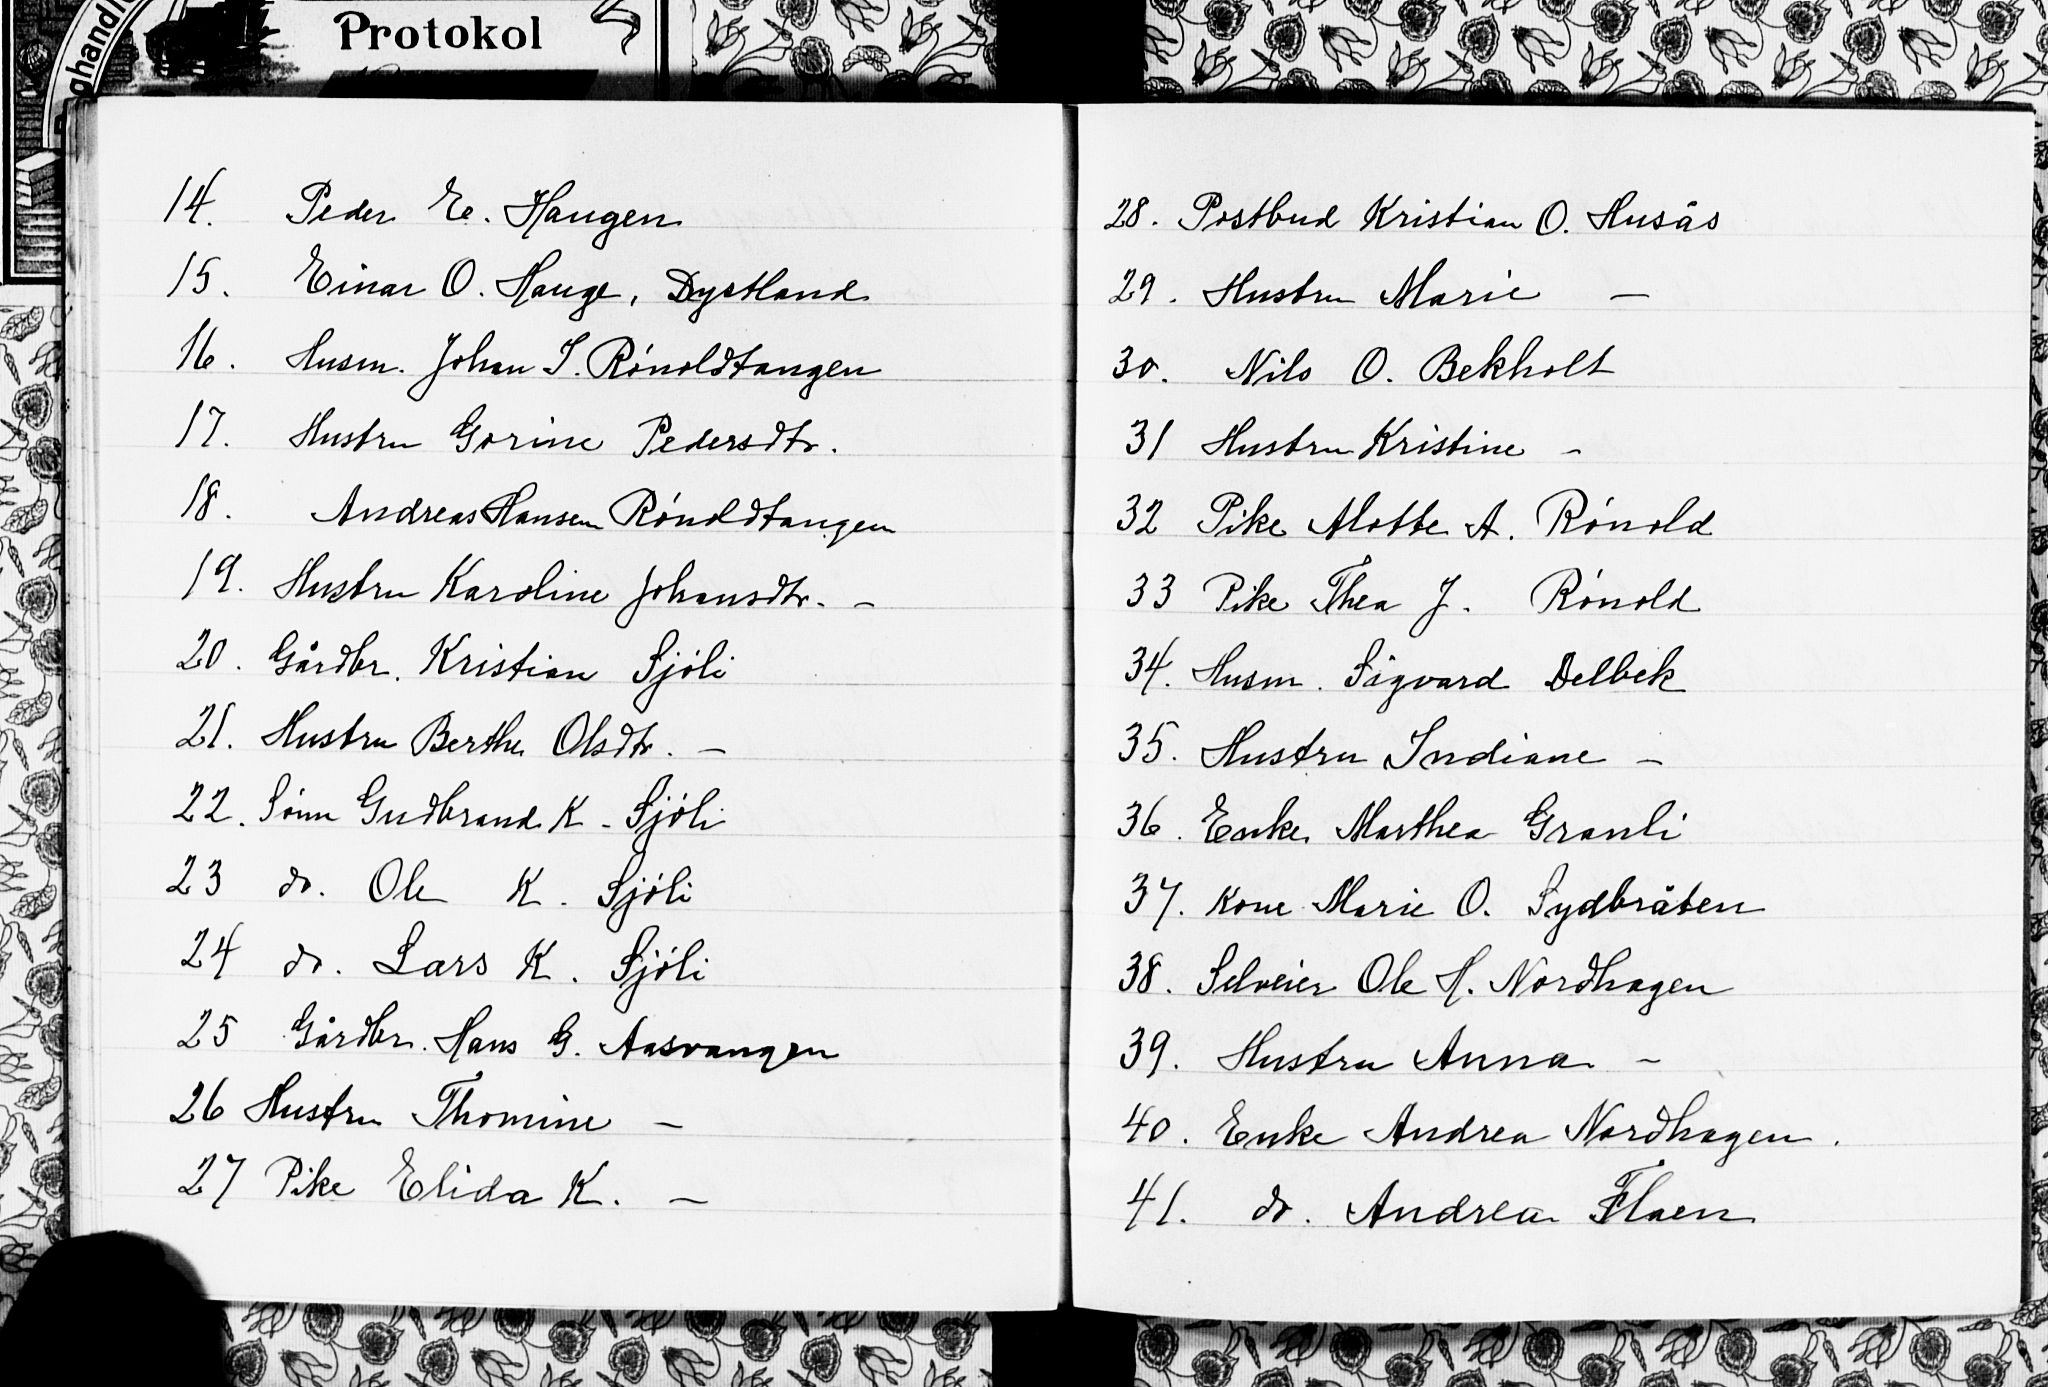 Protokol
ghandl
14. Peder E. Haugen
15. Einar O. Hauge, Dystland
16. Husm. Johan S. Rónoldtangen
17. Hustru Gorine Pedersdtr.
18. Andreas Hansen Rónoldtangen
19. Hustru Karoline Johansdtr. –
20. Gårdbr. Kristian Sjóli
21. Hustru Berthe Olsdtr. –
22. Sónn Gudbrand K. Sjóli
23 do. Ole K. Sjóli
24 do. Lars K. Sjóli
25 Gårdbr. Hans G. Aasvangen
26 Hustru Thomine –
27 Pike Elida K. –
28. Postbud Kristian O. Husås
29. Hustru Marie –
30. Nils O. Bekholt
31 Hustru Kristine –
32 Pike Alotte A. Rónold
33 Pike Thea J. Rónold
34. Husm. Sigvard Delbek
35. Hustru Indiane –
36. Enke Marthea Granli
37. Kone Marie O. Sydbråten
38. Selveier Ole H. Nordhagen
39. Hustru Anna –
40. Enke Andrea Nordhagen.
41. do. Andrea Flaen